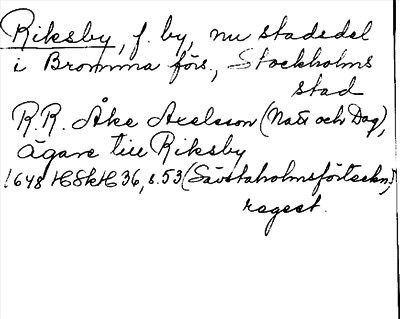 Riksby, f. by, nu stadsdel
i Bromma förs., Stockholms
stad
R.R. Åke Axelsson (Natt och Dag),
Ägare till Riksby
1648 HSkH 36, s. 53 (Sävstaholmsförteckn.)
regest.